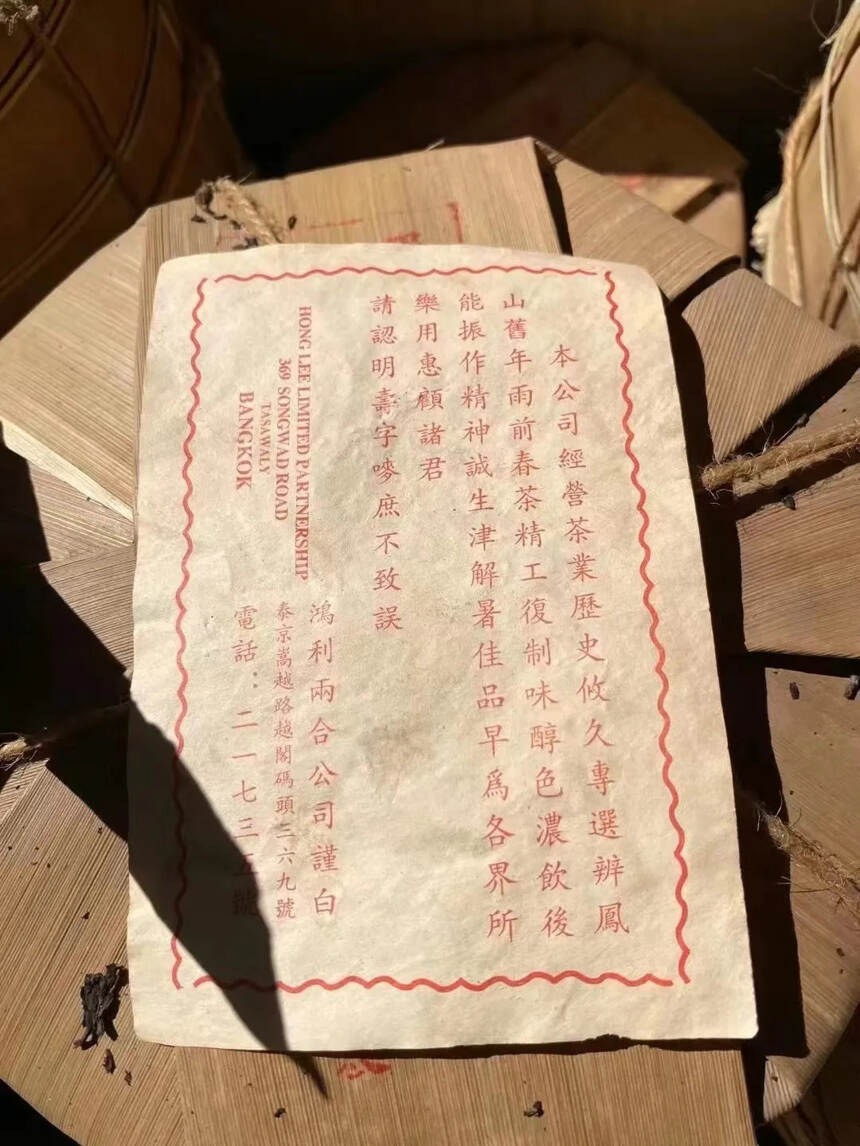 本公司經營茶業歷史攸久專選辨鳳
山舊年雨前春茶精工復制味醇色濃飲後
能振作精神誠生津解暑佳品早爲各界所
樂用惠顧諸君
請認明壽字嘜庶不致誤
鴻利兩合公司謹白
泰京嵩越路越閣碼頭三六九號
電話：二一七三五號
HONG LEE LIMITED PARTNERSHIP
369 SONGWAD ROAD
TASAWALY
BANGKOK